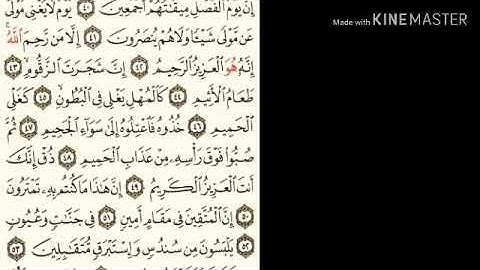 إِنَّ يَوْمَ ٱلْفَصْلِ مِيقَٰتُهُمْ أَجْمَعِينَ ٤٠ يَوْمَ لَا يُغْنِى مَوْلًى
عَن مَّوْلًى شَيْـًٔا وَلَا هُمْ يُنصَرُونَ ٤١ إِلَّا مَن رَّحِمَ ٱللَّهُ
إِنَّهُۥ هُوَ ٱلْعَزِيزُ ٱلرَّحِيمُ ٤٢ إِنَّ شَجَرَتَ ٱلزَّقُّومِ ٤٣
طَعَامُ ٱلْأَثِيمِ ٤٤ كَٱلْمُهْلِ يَغْلِى فِى ٱلْبُطُونِ ٤٥ كَغَلْىِ
ٱلْحَمِيمِ ٤٦ خُذُوهُ فَٱعْتِلُوهُ إِلَىٰ سَوَآءِ ٱلْجَحِيمِ ٤٧ ثُمَّ
صُبُّوا۟ فَوْقَ رَأْسِهِۦ مِنْ عَذَابِ ٱلْحَمِيمِ ٤٨ ذُقْ إِنَّكَ
أَنتَ ٱلْعَزِيزُ ٱلْكَرِيمُ ٤٩ إِنَّ هَٰذَا مَا كُنتُم بِهِۦ تَمْتَرُونَ
٥٠ إِنَّ ٱلْمُتَّقِينَ فِى مَقَامٍ أَمِينٍ ٥١ فِى جَنَّٰتٍ وَعُيُونٍ
٥٢ يَلْبَسُونَ مِن سُندُسٍ وَإِسْتَبْرَقٍ مُّتَقَٰبِلِينَ ٥٣
Made with KINEMASTER